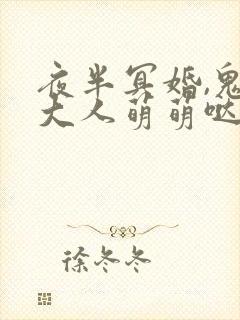 夜半冥婚,鬼
大人萌萌哒
徐冬冬